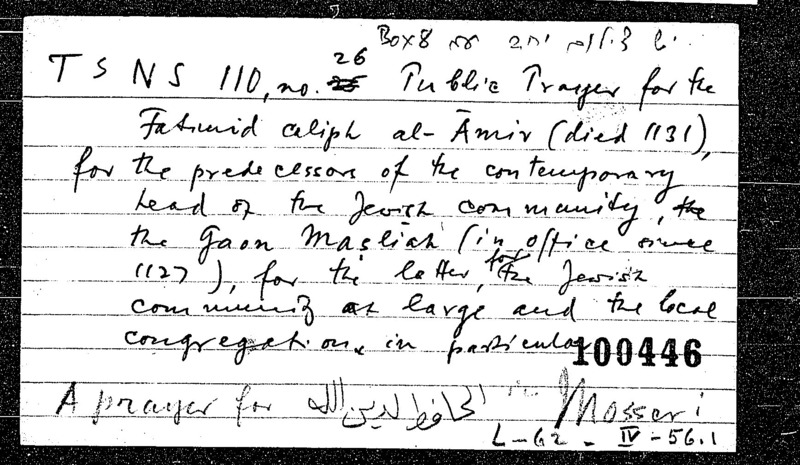 Box 8
TSNS 110, no. 26 Public Prayer for the
Fatimid caliph al-Āmir (died 1131),
for the predecessors of the contemporary
head of the Jewish community, the
the Gaon Maṣliaḥ (in office since
1127), for the latter, for the Jewish
community at large and the local
congregation, in particular
100446
A prayer for الحافظ لدين الله in Mosseri
L-G2 - IV - 56.1